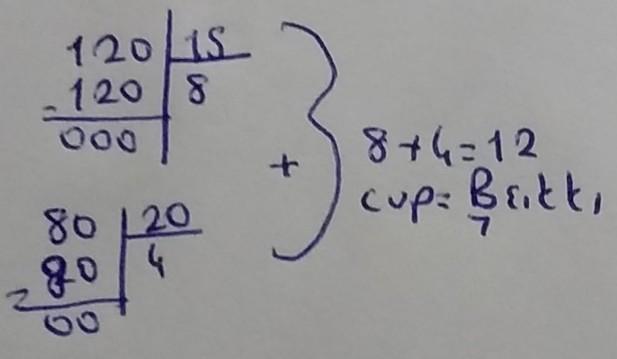 120 | 15
-120 | 8
000
80 | 20
-80 | 4
00
+
8+4=12
cvp=B